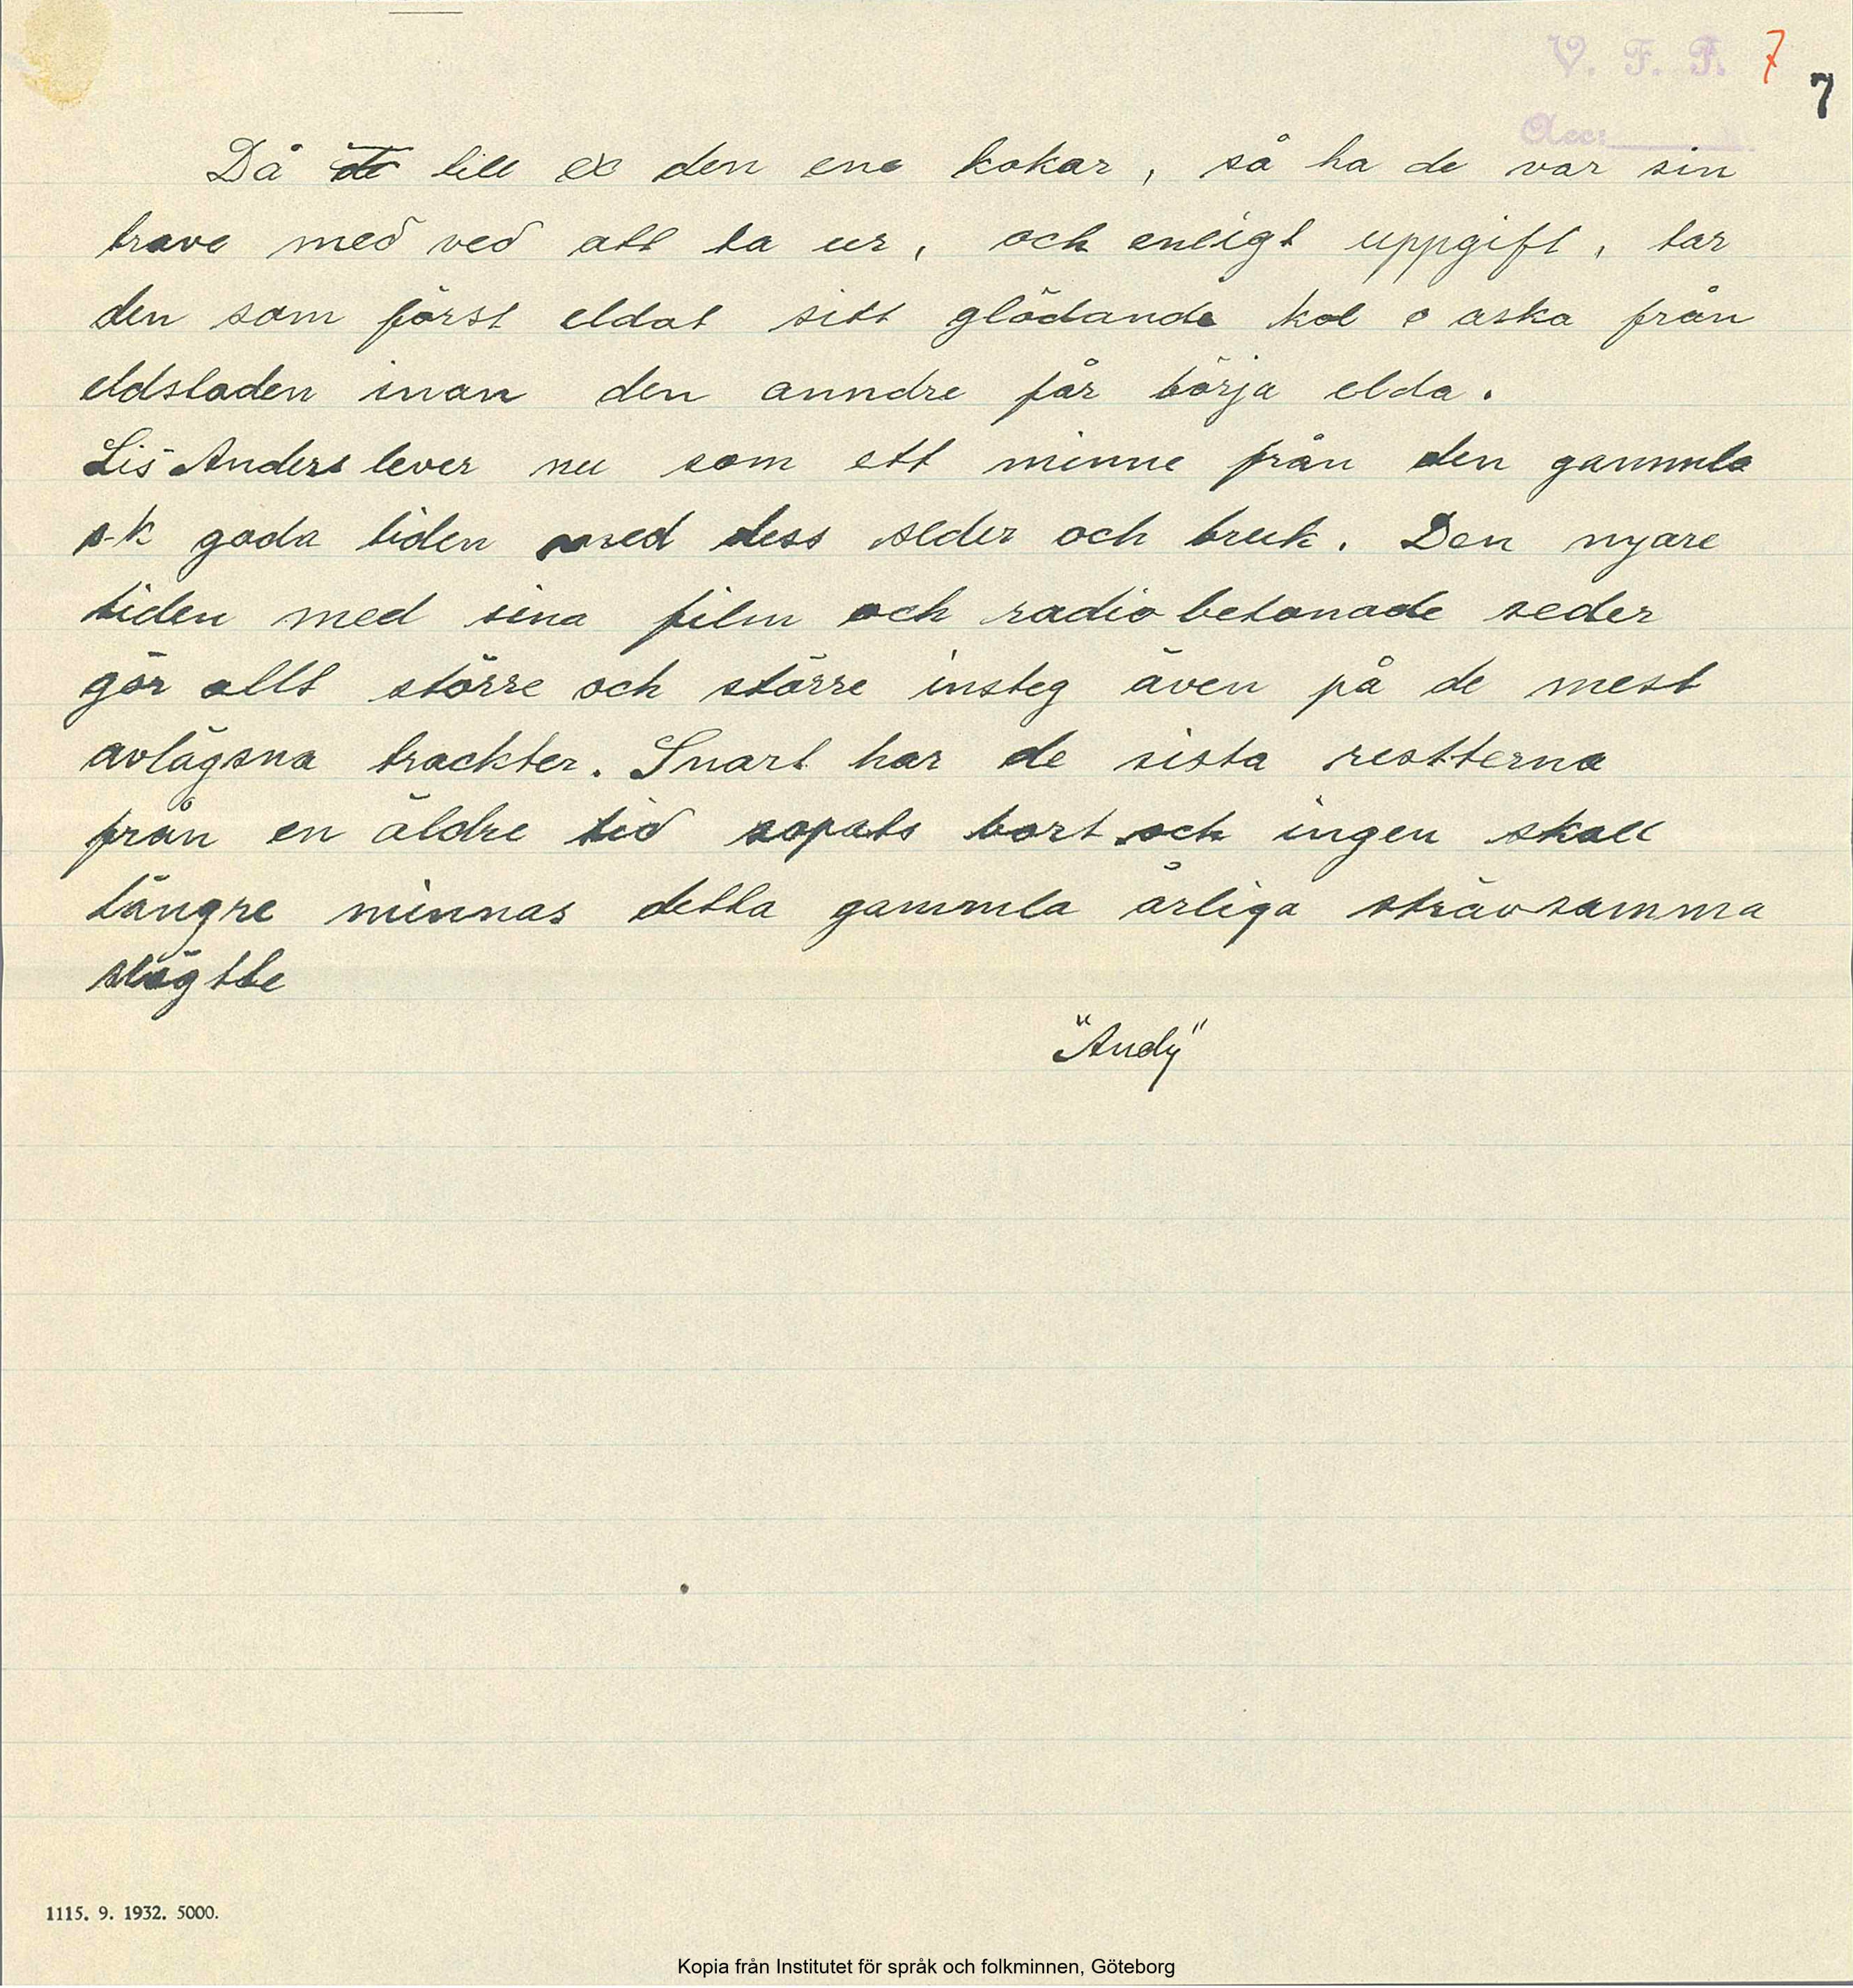 V. F. F. 7
7
Acc:
Då de till ex den ene kokar, så ha de var sin
trave med ved att ta ur, och enligt uppgift, tar
den som först eldat sitt glödande kol o aska från
eldstaden inan den anndre får börja elda.
Lis Anders lever nu som ett minne från den gammla
s-k goda tiden med dess seder och bruk. Den nyare
tiden med sina film och radiobetonade seder
gör allt större och större insteg även på de mest
avlägsna trackter. Snart har de sista restterna
från en äldre tid sopats bort och ingen skall
längre minnas detta gammla ärliga strävsamma
slägtte
"Andy"
1115. 9. 1932. 5000.
Kopia från Institutet för språk och folkminnen, Göteborg